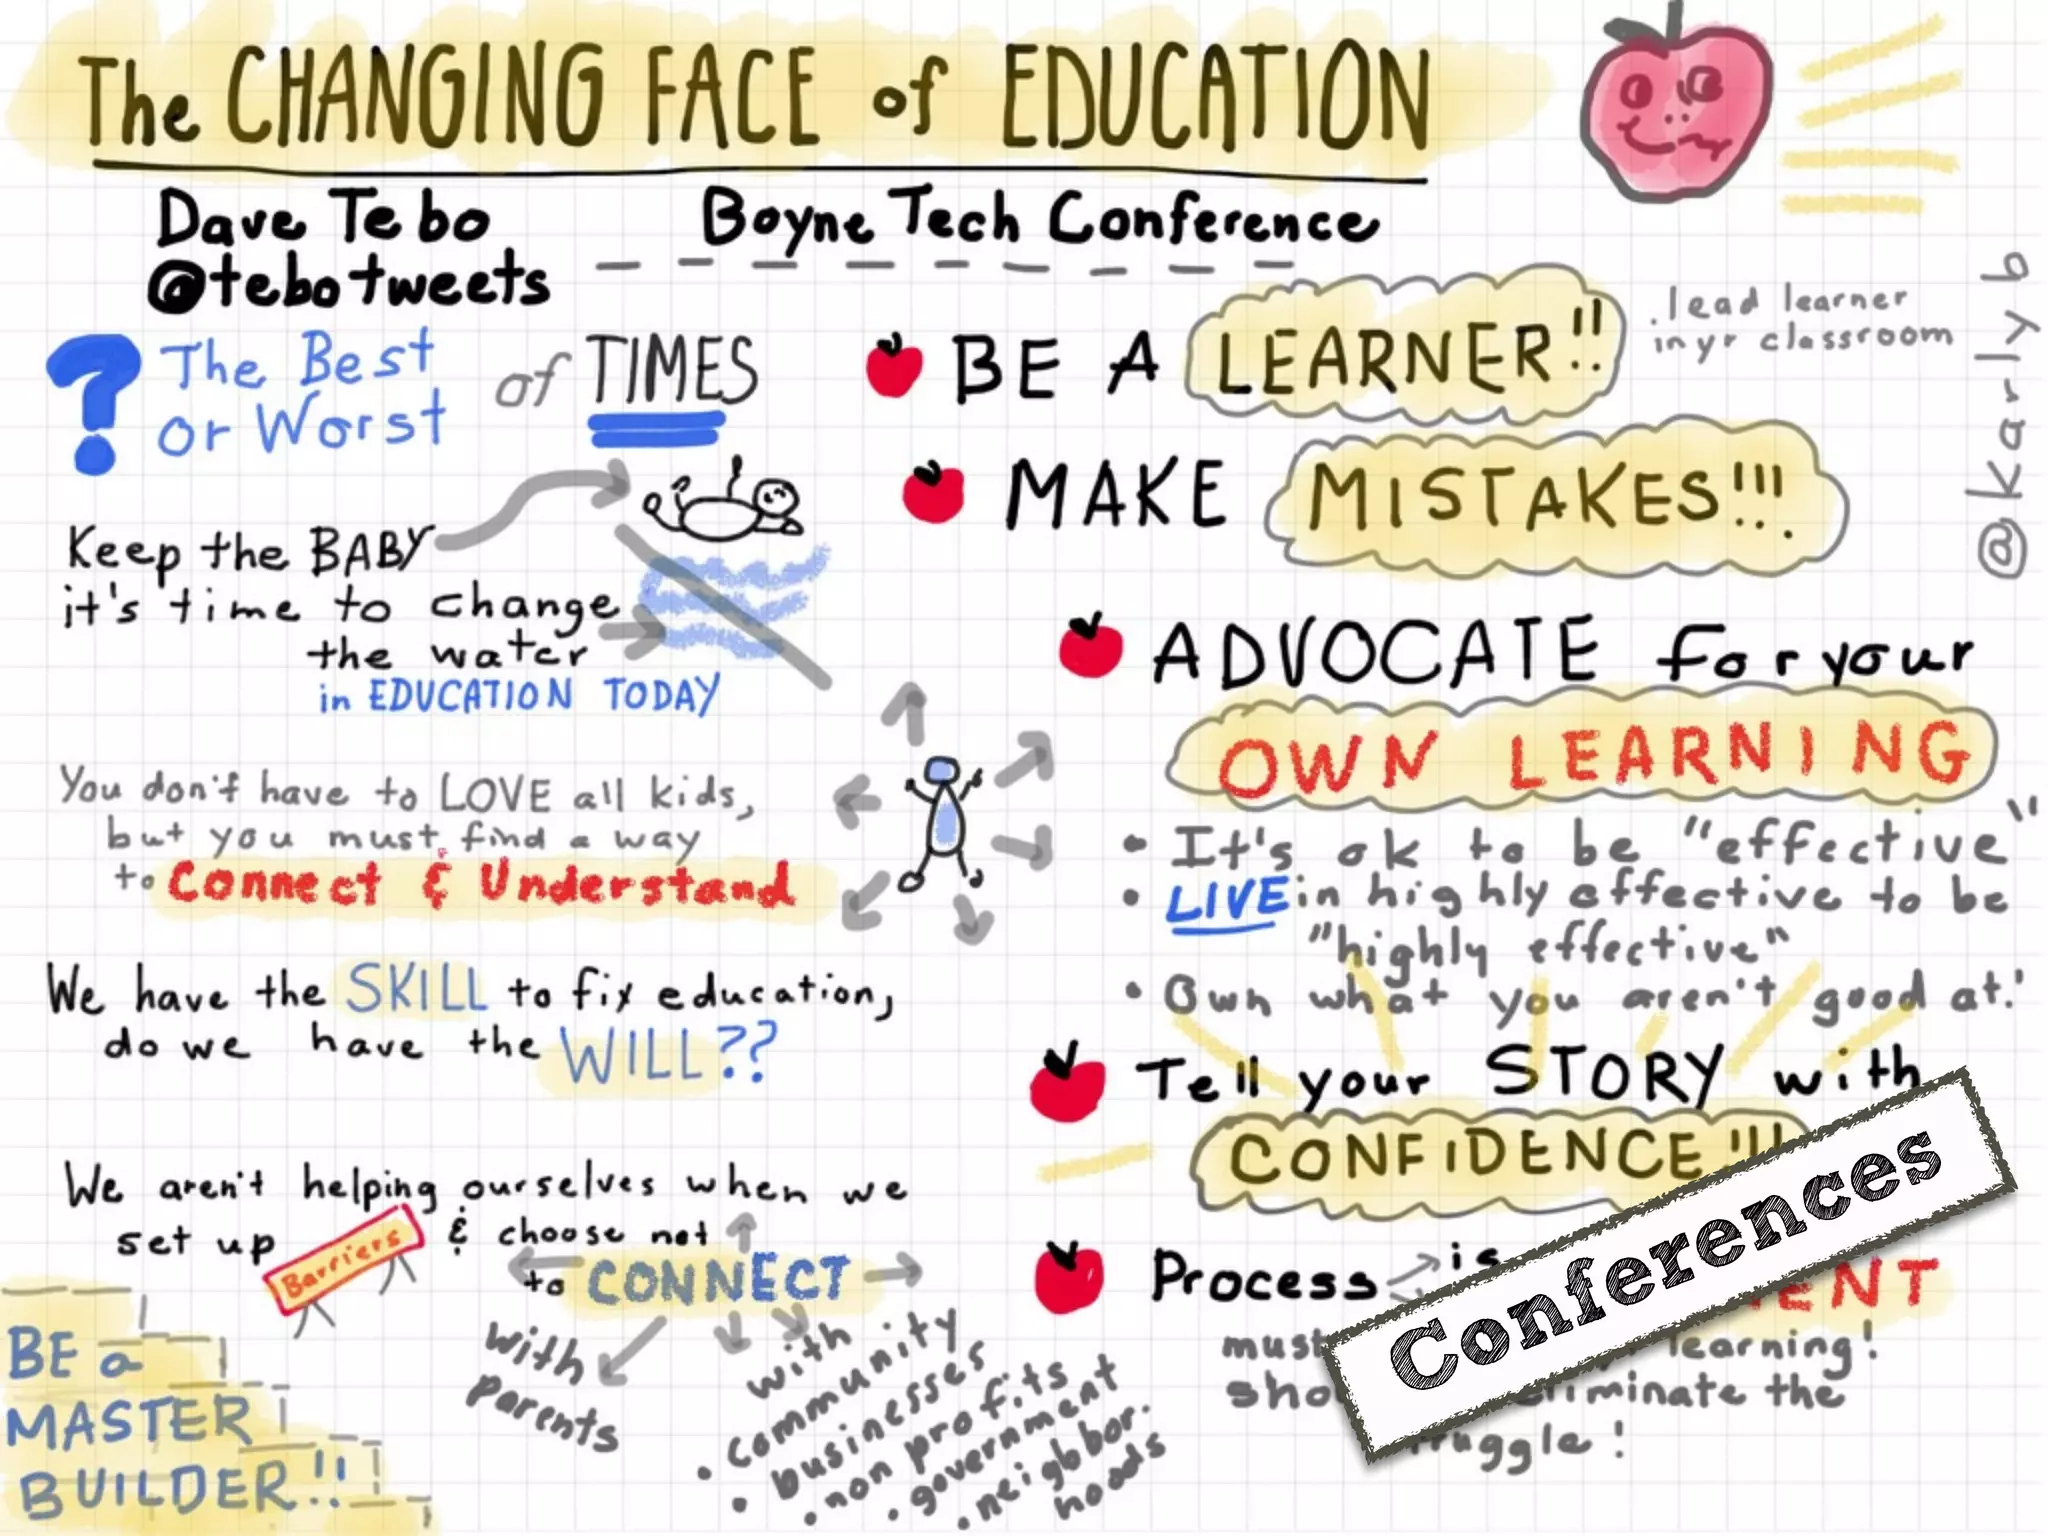 The CHANGING FACE of EDUCATION
Dave Tebo
@tebotweets
Boyne Tech Conference
@karlyb
? The Best
or Worst
of TIMES
Keep the BABY
it's time to change
the water
in EDUCATION TODAY
You don't have to LOVE all kids,
but you must find a way
to Connect & Understand
We have the SKILL to fix education,
do we have the WILL??
We aren't helping ourselves when we
set up Barriers & choose not
to CONNECT
with
parents
with
• community
• businesses
• non profits
• government
• neighbor-
hoods
BE a
MASTER
BUILDER!!
BE A LEARNER!!
. lead learner
in yr classroom
MAKE MISTAKES!!!
ADVOCATE for your
OWN LEARNING
• It's ok to be "effective"
• LIVE in highly effective to be
"highly effective"
• Own what you aren't good at!
Tell your STORY with
CONFIDENCE!!!
Process is
learning!
the
!
Conferences